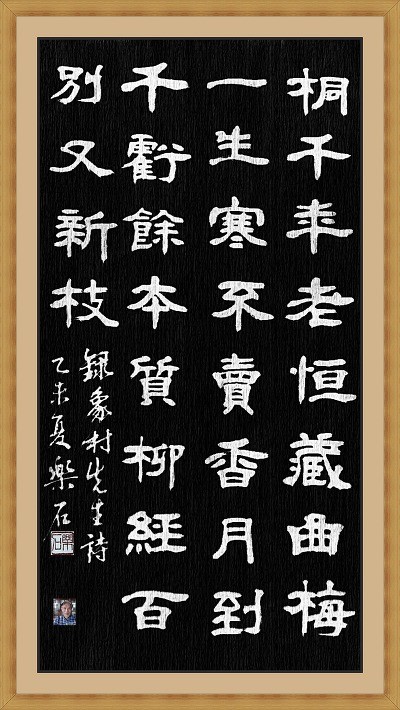 桐千年老恒藏曲梅
一生寒不賣香月到
千虧餘本質柳經百
別又新枝
錄象村先生詩
乙未夏樂石
樂石